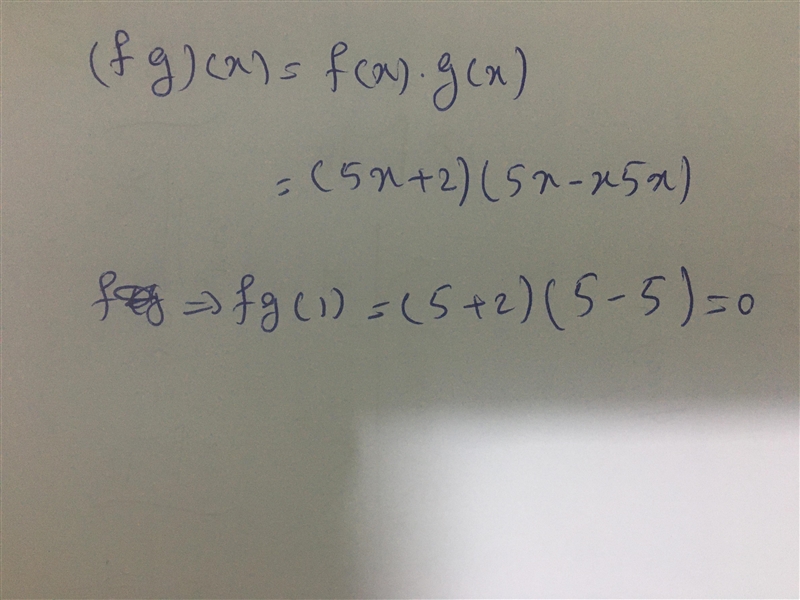 (fg)(x) = f(x).g(x)
= (5x+2)(5x-x5x)
f ⇒ fg(1) = (5+2)(5-5) = 0